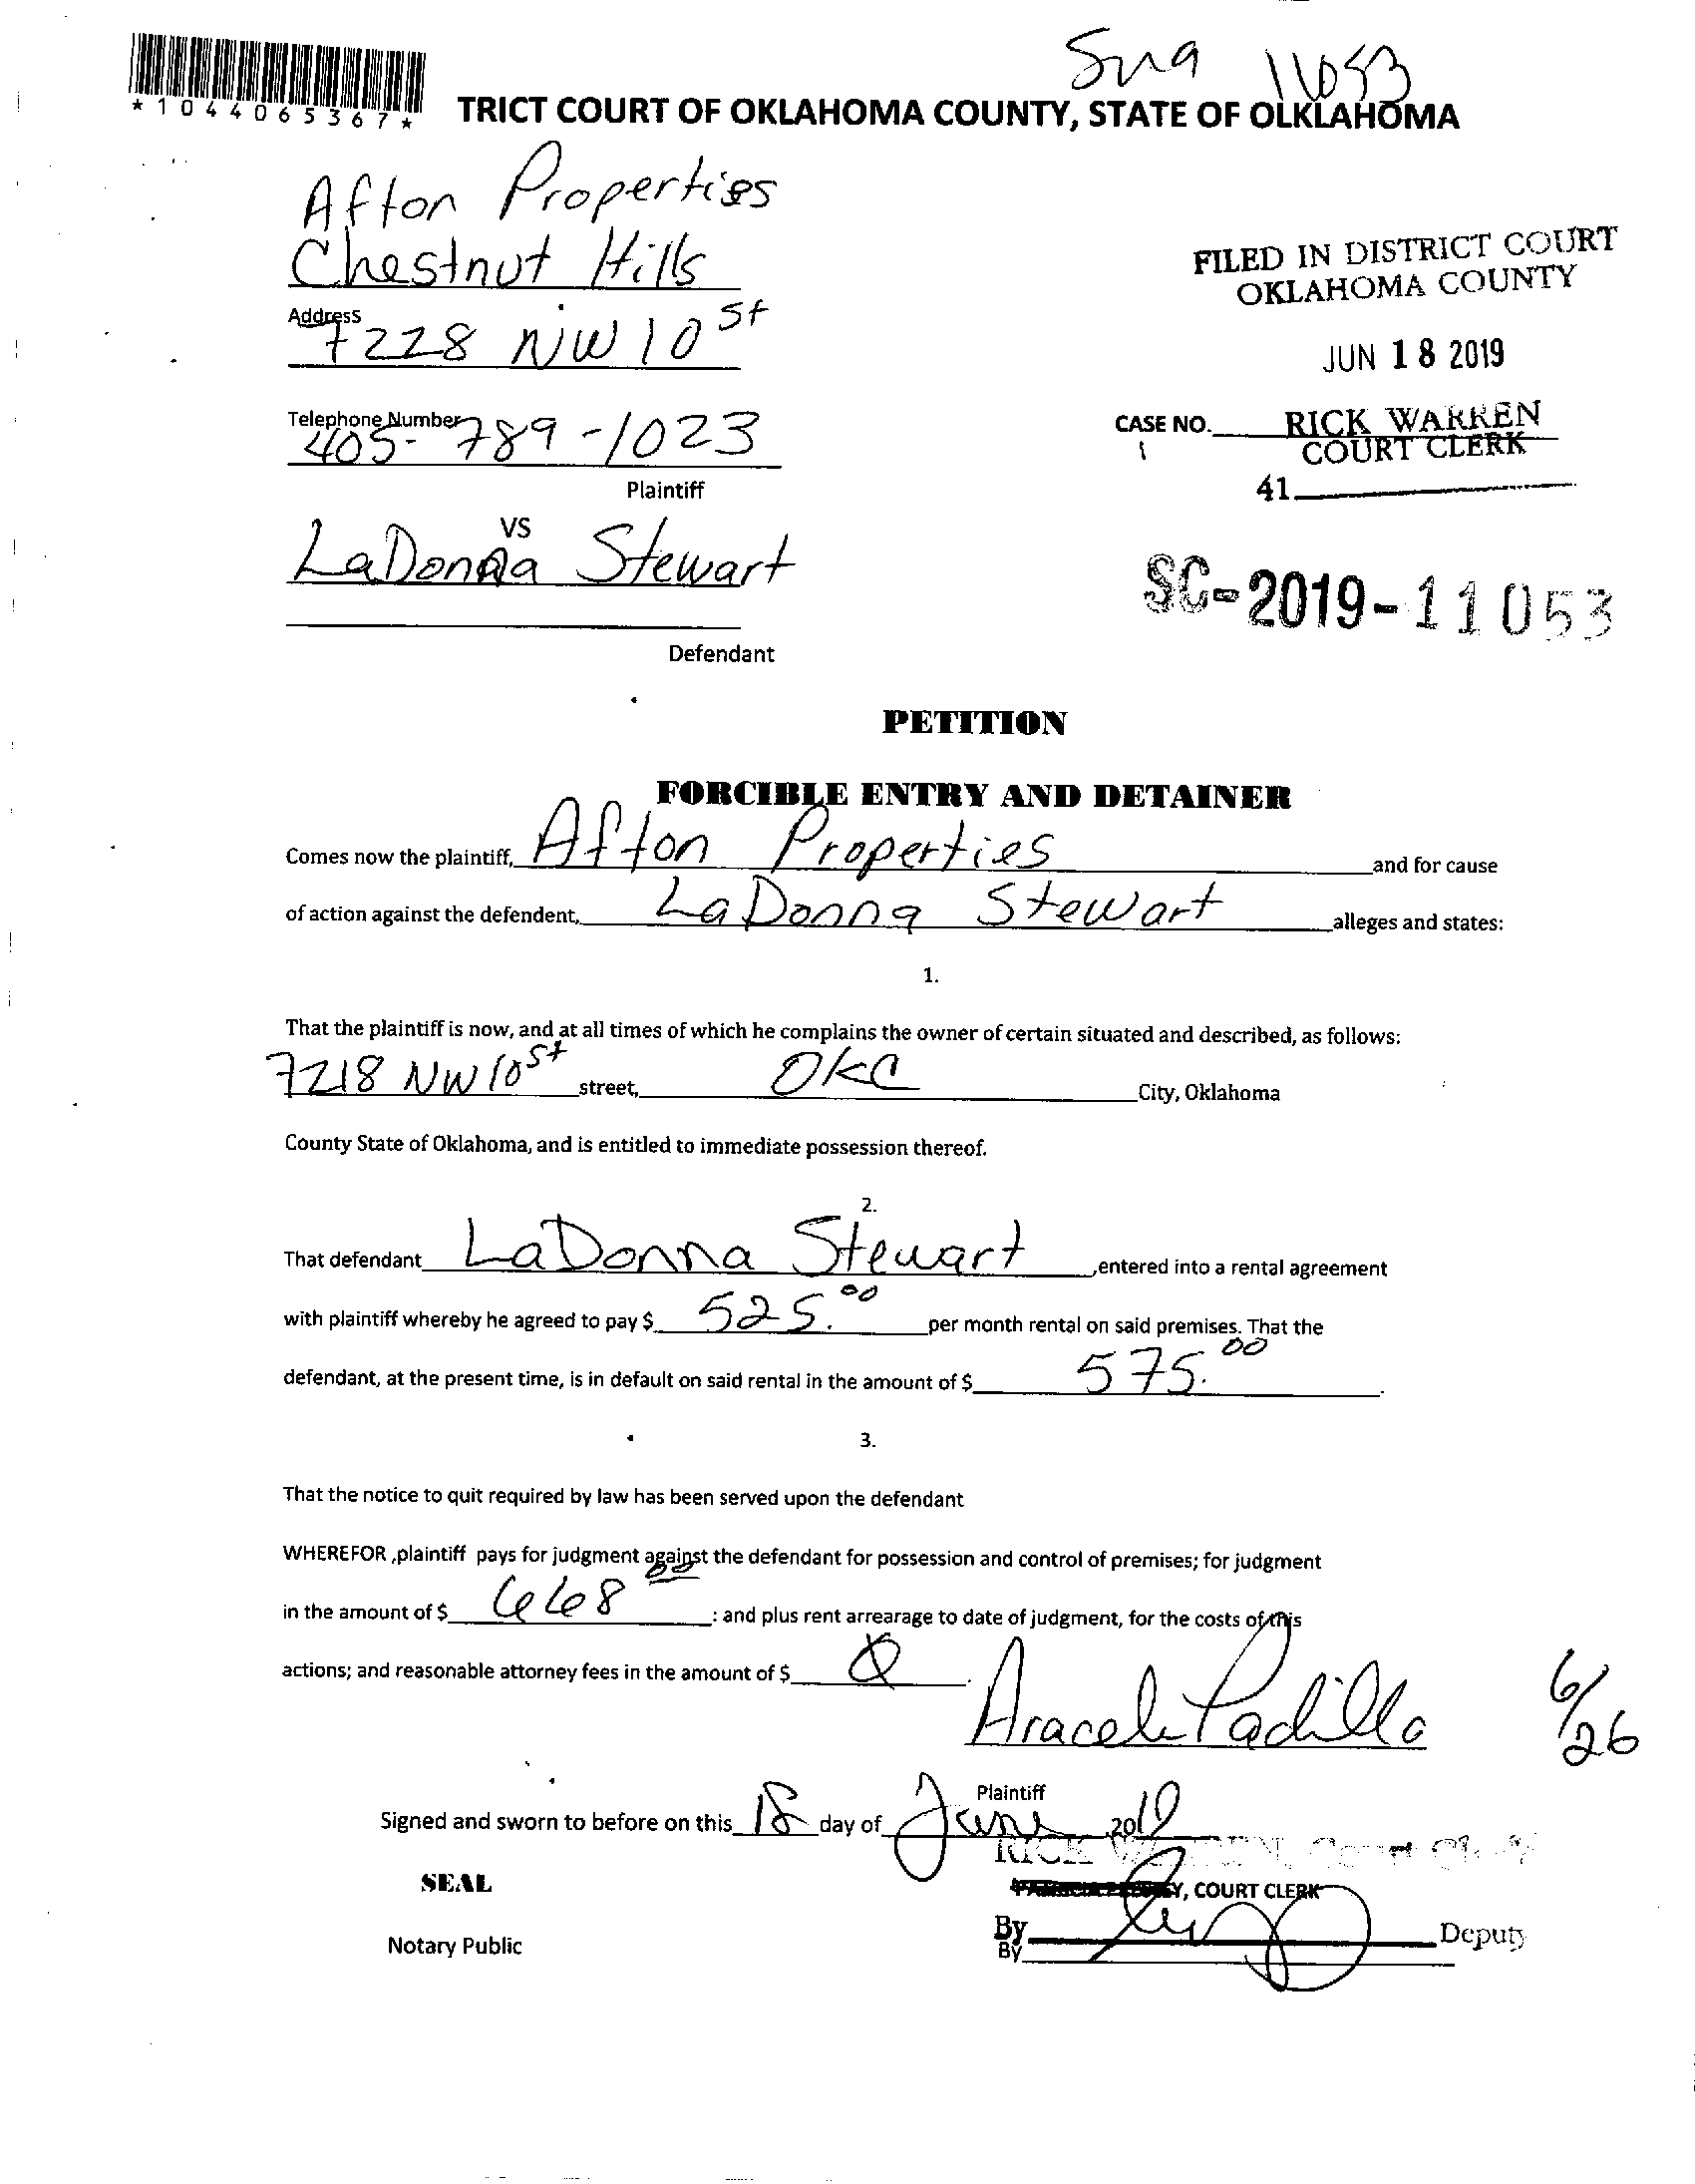 Sna 11053
*1044065367*
TRICT COURT OF OKLAHOMA COUNTY, STATE OF OLKLAHOMA
Afton Properties
Chestnut Hills
Address
7228 NW 10 st
Telephone Number
405-789-1023
Plaintiff
VS
LaDonna Stewart
Defendant
FILED IN DISTRICT COURT
OKLAHOMA COUNTY
JUN 18 2019
CASE NO. RICK WARREN
COURT CLERK
41
SC-2019-11053
PETITION
FORCIBLE ENTRY AND DETAINER
Comes now the plaintiff, Afton Properties and for cause
of action against the defendent, LaDonna Stewart alleges and states:
1.
That the plaintiff is now, and at all times of which he complains the owner of certain situated and described, as follows:
7218 NW 10 st street, OKC City, Oklahoma
County State of Oklahoma, and is entitled to immediate possession thereof.
2.
That defendant LaDonna Stewart ,entered into a rental agreement
with plaintiff whereby he agreed to pay $ 525.00 per month rental on said premises. That the
defendant, at the present time, is in default on said rental in the amount of $ 575.00.
3.
That the notice to quit required by law has been served upon the defendant
WHEREFOR ,plaintiff pays for judgment against the defendant for possession and control of premises; for judgment
in the amount of $ 668 00 : and plus rent arrearage to date of judgment, for the costs of this
actions; and reasonable attorney fees in the amount of $ 0.
Araceli Padilla 6/26
Plaintiff
Signed and sworn to before on this 18 day of June 2019
RICK WARREN, Court Clerk
SEAL
Y, COURT CLERK
Notary Public
By Deputy
By